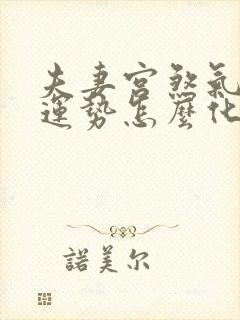 夫妻宮煞氣
運勢怎麼化
諾美尔